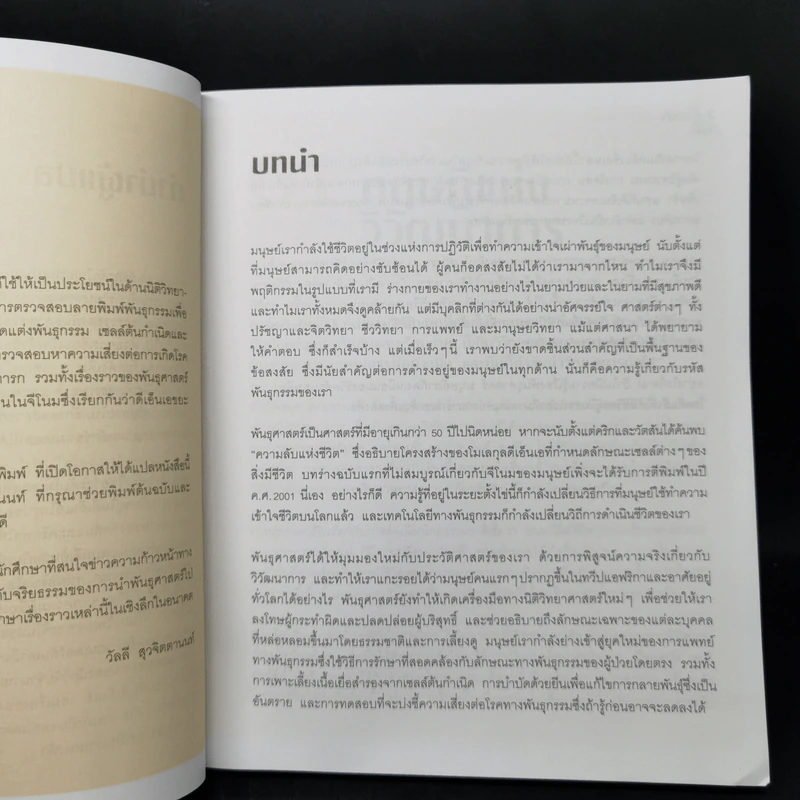 ใช้ให้เป็นประโยชน์ในด้านนิติวิทยา-
การตรวจสอบลายพิมพ์พันธุกรรมเพื่อ
ดแต่งพันธุกรรม เซลล์ต้นกำเนิดและ
รวจสอบหาความเสี่ยงต่อการเกิดโรค
ารก รวมทั้งเรื่องราวของพันธุศาสตร์
นในจีโนมซึ่งเรียกกันว่าดีเอ็นเอขยะ
พิมพ์ ที่เปิดโอกาสให้ได้แปลหนังสือนี้
นนท์ ที่กรุณาช่วยพิมพ์ต้นฉบับและ
ดี
นักศึกษาที่สนใจข่าวความก้าวหน้าทาง
กับจริยธรรมของการนำพันธุศาสตร์ไป
กษาเรื่องราวเหล่านี้ในเชิงลึกในอนาคต
วัลลี สุวจิตตานนท์
บทนำ
มนุษย์เรากำลังใช้ชีวิตอยู่ในช่วงแห่งการปฏิวัติเพื่อทำความเข้าใจเผ่าพันธุ์ของมนุษย์ นับตั้งแต่
ที่มนุษย์สามารถคิดอย่างซับซ้อนได้ ผู้คนก็อดสงสัยไม่ได้ว่าเรามาจากไหน ทำไมเราจึงมี
พฤติกรรมในรูปแบบที่เรามี ร่างกายของเราทำงานอย่างไรในยามป่วยและในยามที่มีสุขภาพดี
และทำไมเราทั้งหมดจึงดูคล้ายกัน แต่มีบุคลิกที่ต่างกันได้อย่างน่าอัศจรรย์ใจ ศาสตร์ต่างๆ ทั้ง
ปรัชญาและจิตวิทยา ชีววิทยา การแพทย์ และมานุษยวิทยา แม้แต่ศาสนา ได้พยายาม
ให้คำตอบ ซึ่งก็สำเร็จบ้าง แต่เมื่อเร็วๆ นี้ เราพบว่ายังขาดชิ้นส่วนสำคัญที่เป็นพื้นฐานของ
ข้อสงสัย ซึ่งมีนัยสำคัญต่อการดำรงอยู่ของมนุษย์ในทุกด้าน นั่นก็คือความรู้เกี่ยวกับรหัส
พันธุกรรมของเรา
พันธุศาสตร์เป็นศาสตร์ที่มีอายุเกินกว่า 50 ปีไปนิดหน่อย หากจะนับตั้งแต่คริกและวัตสันได้ค้นพบ
"ความลับแห่งชีวิต" ซึ่งอธิบายโครงสร้างของโมเลกุลดีเอ็นเอที่กำหนดลักษณะเซลล์ต่างๆ ของ
สิ่งมีชีวิต บทร่างฉบับแรกที่ไม่สมบูรณ์เกี่ยวกับจีโนมของมนุษย์เพิ่งจะได้รับการตีพิมพ์ในปี
ค.ศ. 2001 นี่เอง อย่างไรก็ดี ความรู้ที่อยู่ในระยะตั้งไข่นี้ก็กำลังเปลี่ยนวิธีการที่มนุษย์ใช้ทำความ
เข้าใจชีวิตบนโลกแล้ว และเทคโนโลยีทางพันธุกรรมก็กำลังเปลี่ยนวิถีการดำเนินชีวิตของเรา
พันธุศาสตร์ได้ให้มุมมองใหม่กับประวัติศาสตร์ของเรา ด้วยการพิสูจน์ความจริงเกี่ยวกับ
วิวัฒนาการ และทำให้เราแกะรอยได้ว่ามนุษย์คนแรกๆ ปรากฏขึ้นในทวีปแอฟริกาและอาศัยอยู่
ทั่วโลกได้อย่างไร พันธุศาสตร์ยังทำให้เกิดเครื่องมือทางนิติวิทยาศาสตร์ใหม่ๆ เพื่อช่วยให้เรา
ลงโทษผู้กระทำผิดและปลดปล่อยผู้บริสุทธิ์ และช่วยอธิบายถึงลักษณะเฉพาะของแต่ละบุคคล
ที่หล่อหลอมขึ้นมาโดยธรรมชาติและการเลี้ยงดู มนุษย์เรากำลังย่างเข้าสู่ยุคใหม่ของการแพทย์
ทางพันธุกรรมซึ่งใช้วิธีการรักษาที่สอดคล้องกับลักษณะทางพันธุกรรมของผู้ป่วยโดยตรง รวมทั้ง
การเพาะเลี้ยงเนื้อเยื่อสำรองจากเซลล์ต้นกำเนิด การบำบัดด้วยยีนเพื่อแก้ไขการกลายพันธุ์ซึ่งเป็น
อันตราย และการทดสอบที่จะบ่งชี้ความเสี่ยงต่อโรคทางพันธุกรรมซึ่งถ้ารู้ก่อนอาจจะลดลงได้